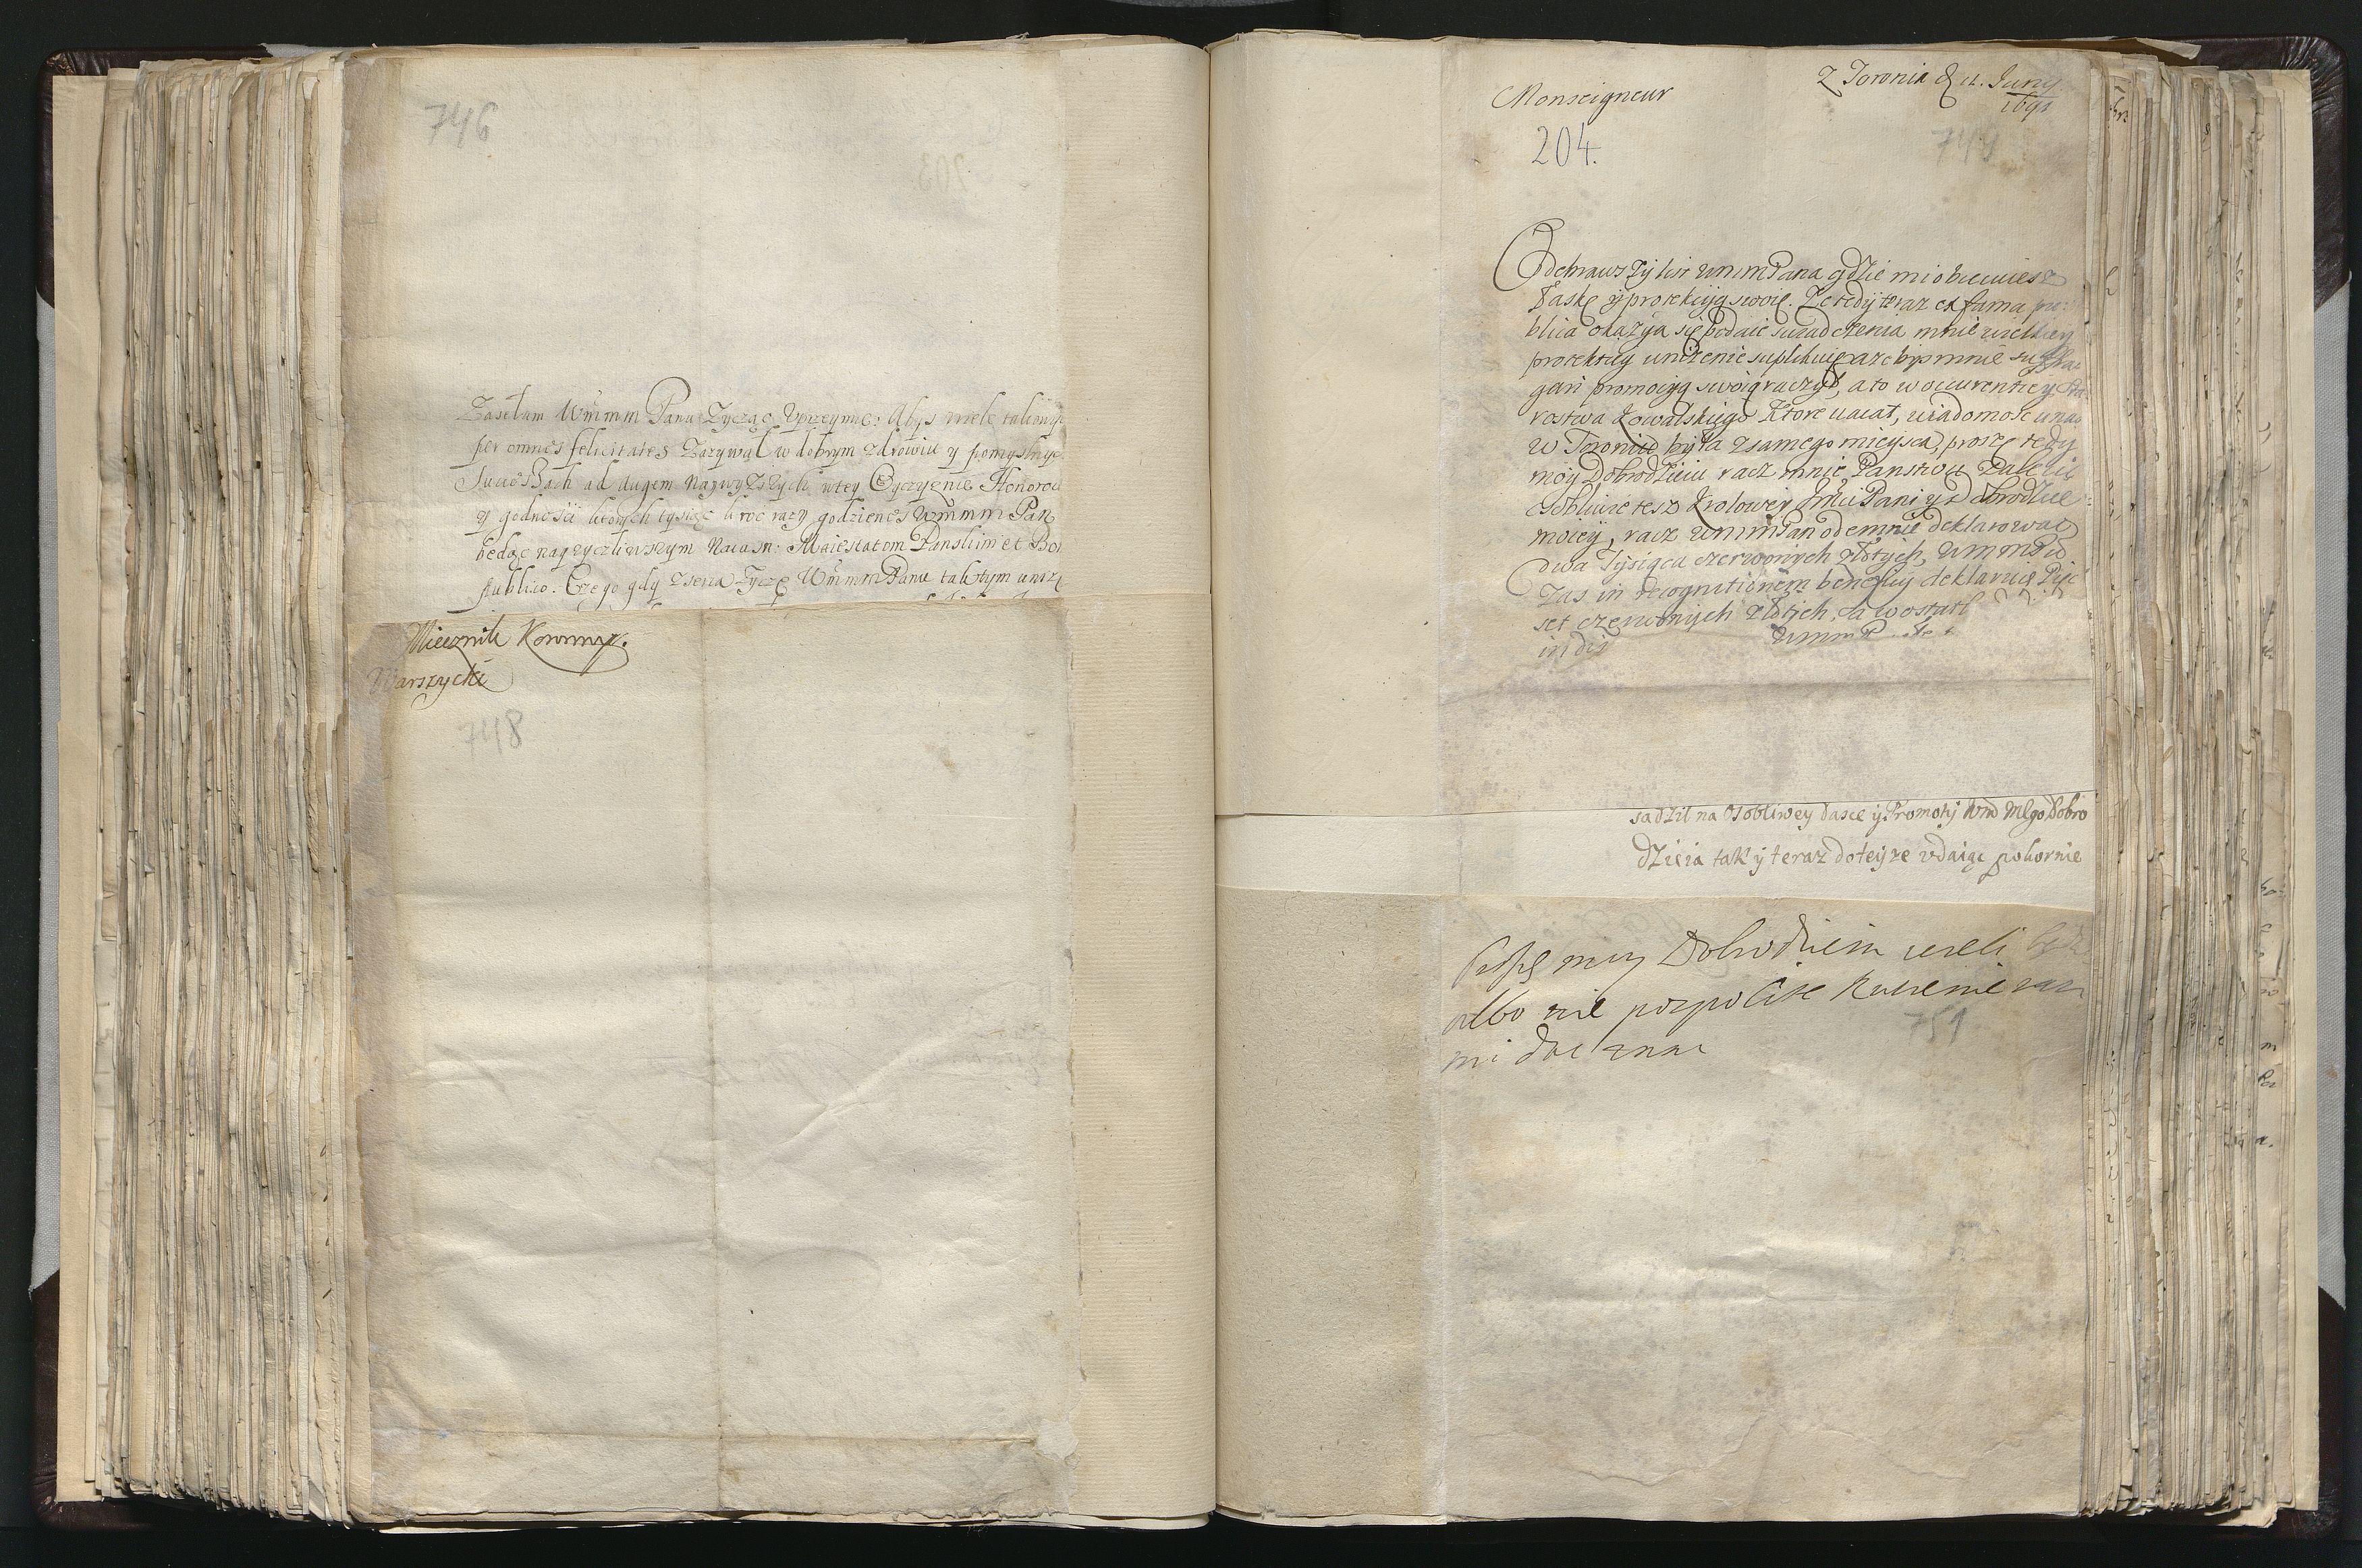 746
203
Zasełam Wmmm Panu Zycząc Vprzeymie: Abys wiele takowych
per omnes felicitates Zazywał w dobrym zdrowiu y pomyslnych
Successach ad augem naywyzszych wtey Oyczyznie Honorow
y godnosci ktorych tysiąc kroc razy godzienes Wmmm Pan
będąc nayzyczliwszym Maiestatom Panskim et Bono
publico. Czego gdy Zycze Wmmm Panu taktym
Miecznik Koronny.
Warszycki
748
Monseigneur
Z Toronia d 12. Juny
1691
204.
749
Odebrawszy list wmmPana gdzie mi obiecuiesz
łaskę y protekcyą swoię. Ze tedy teraz ex fama pu:
blica okazya się podaie swiadczenia mnie wielkiey
protekcyy unizenie suplikuię azebys mnie suffra
gari promocyą swoią raczył, a to w occurentiey Sta
rostwa Kowalskiego Ktore vacat, wiadomosc u nas
w Toroniu była z samego mieysca, proszę tedy
moy Dobrodzieiu racz mnie Panstwu Zalecic
osobliwie tesz Krolowey Jmci Paniy y Dobrodzice
moiey, racz wmmPan odemnie deklarowac
dwa Tysiąca czerwonych złotych, WmmPu
Zas in recognitionem beneficij deklaruię Pięc
set czerwonych złotych, a wostatk
in di wmmP
sadził na osobliwey łasce y Promotij Wm Mgo Dobro
dzieia tak y teraz doteyze vdaiąc pokornie
Proszę muy Dobrodzieiu iezeli będz
albo nie pospolite Ruszenie racz
mi dac znac
751